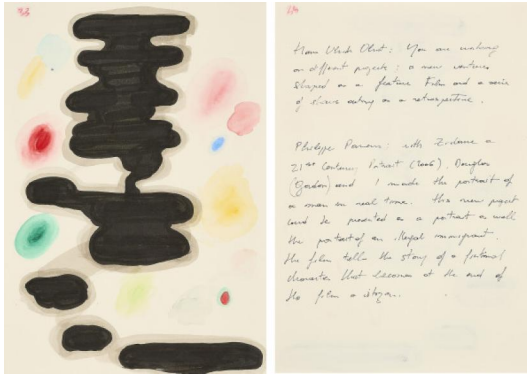 Hans Ulrich Obrist : You are working
on different projects : a new venture
shaped as a feature Film and a serie
of shows acting as a retrospective.
Philippe Parreno : with Zidane a
21st Century Portrait (2006), Douglas
(Gordon) and I made the portrait of
a man in real time. this new project
could be presented as a portrait as well
the portrait of an illegal immigrant.
the film tells the story of a fictional
character that becomes at the end of
the film a citizen.